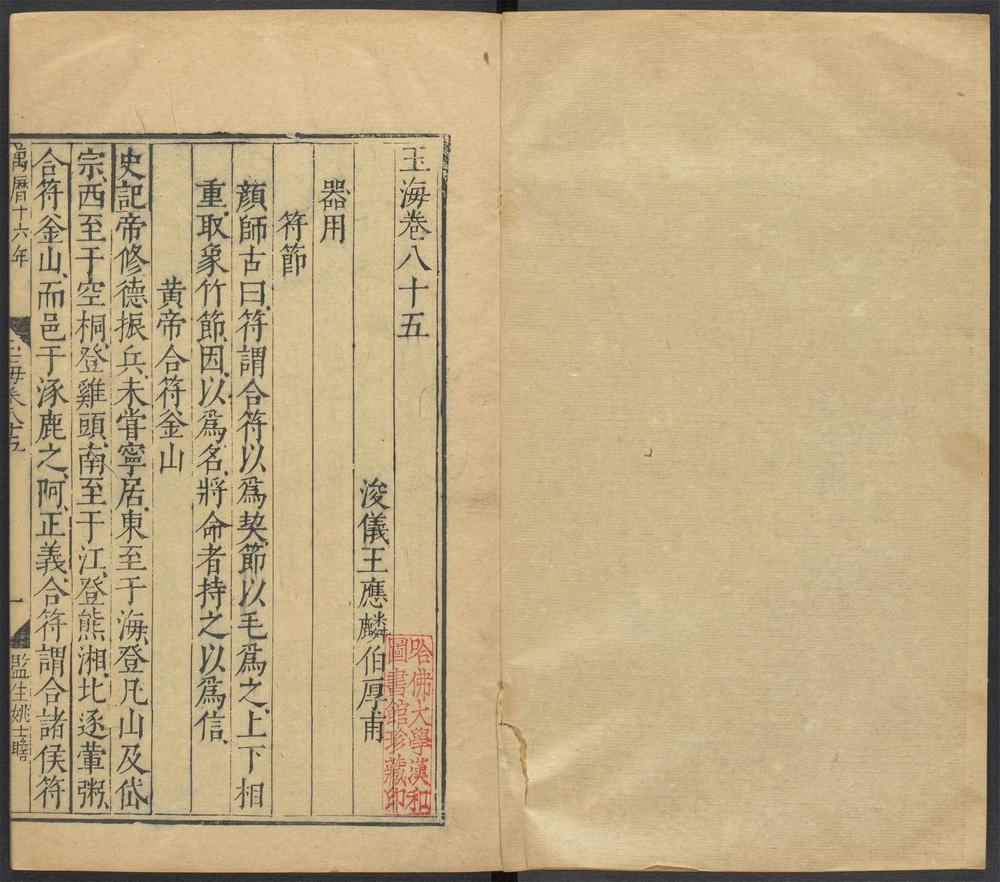 玉海卷八十五
浚儀王應麟伯厚甫
器用
符節
顔師古曰符謂合符以爲契節以毛爲之上下相
重取象竹節因以爲名將命者持之以爲信
黄帝合符釜山
史記帝修德振兵未甞寧居東至于海登凡山及岱
宗西至于空桐登雞頭南至于江登熊湘北逐葷粥
合符釜山而邑于涿鹿之阿正義合符謂合諸侯符
萬曆十六年
玉海卷八十五
一
監生姚士瞻
哈佛大學漢和
圖書館珍藏印